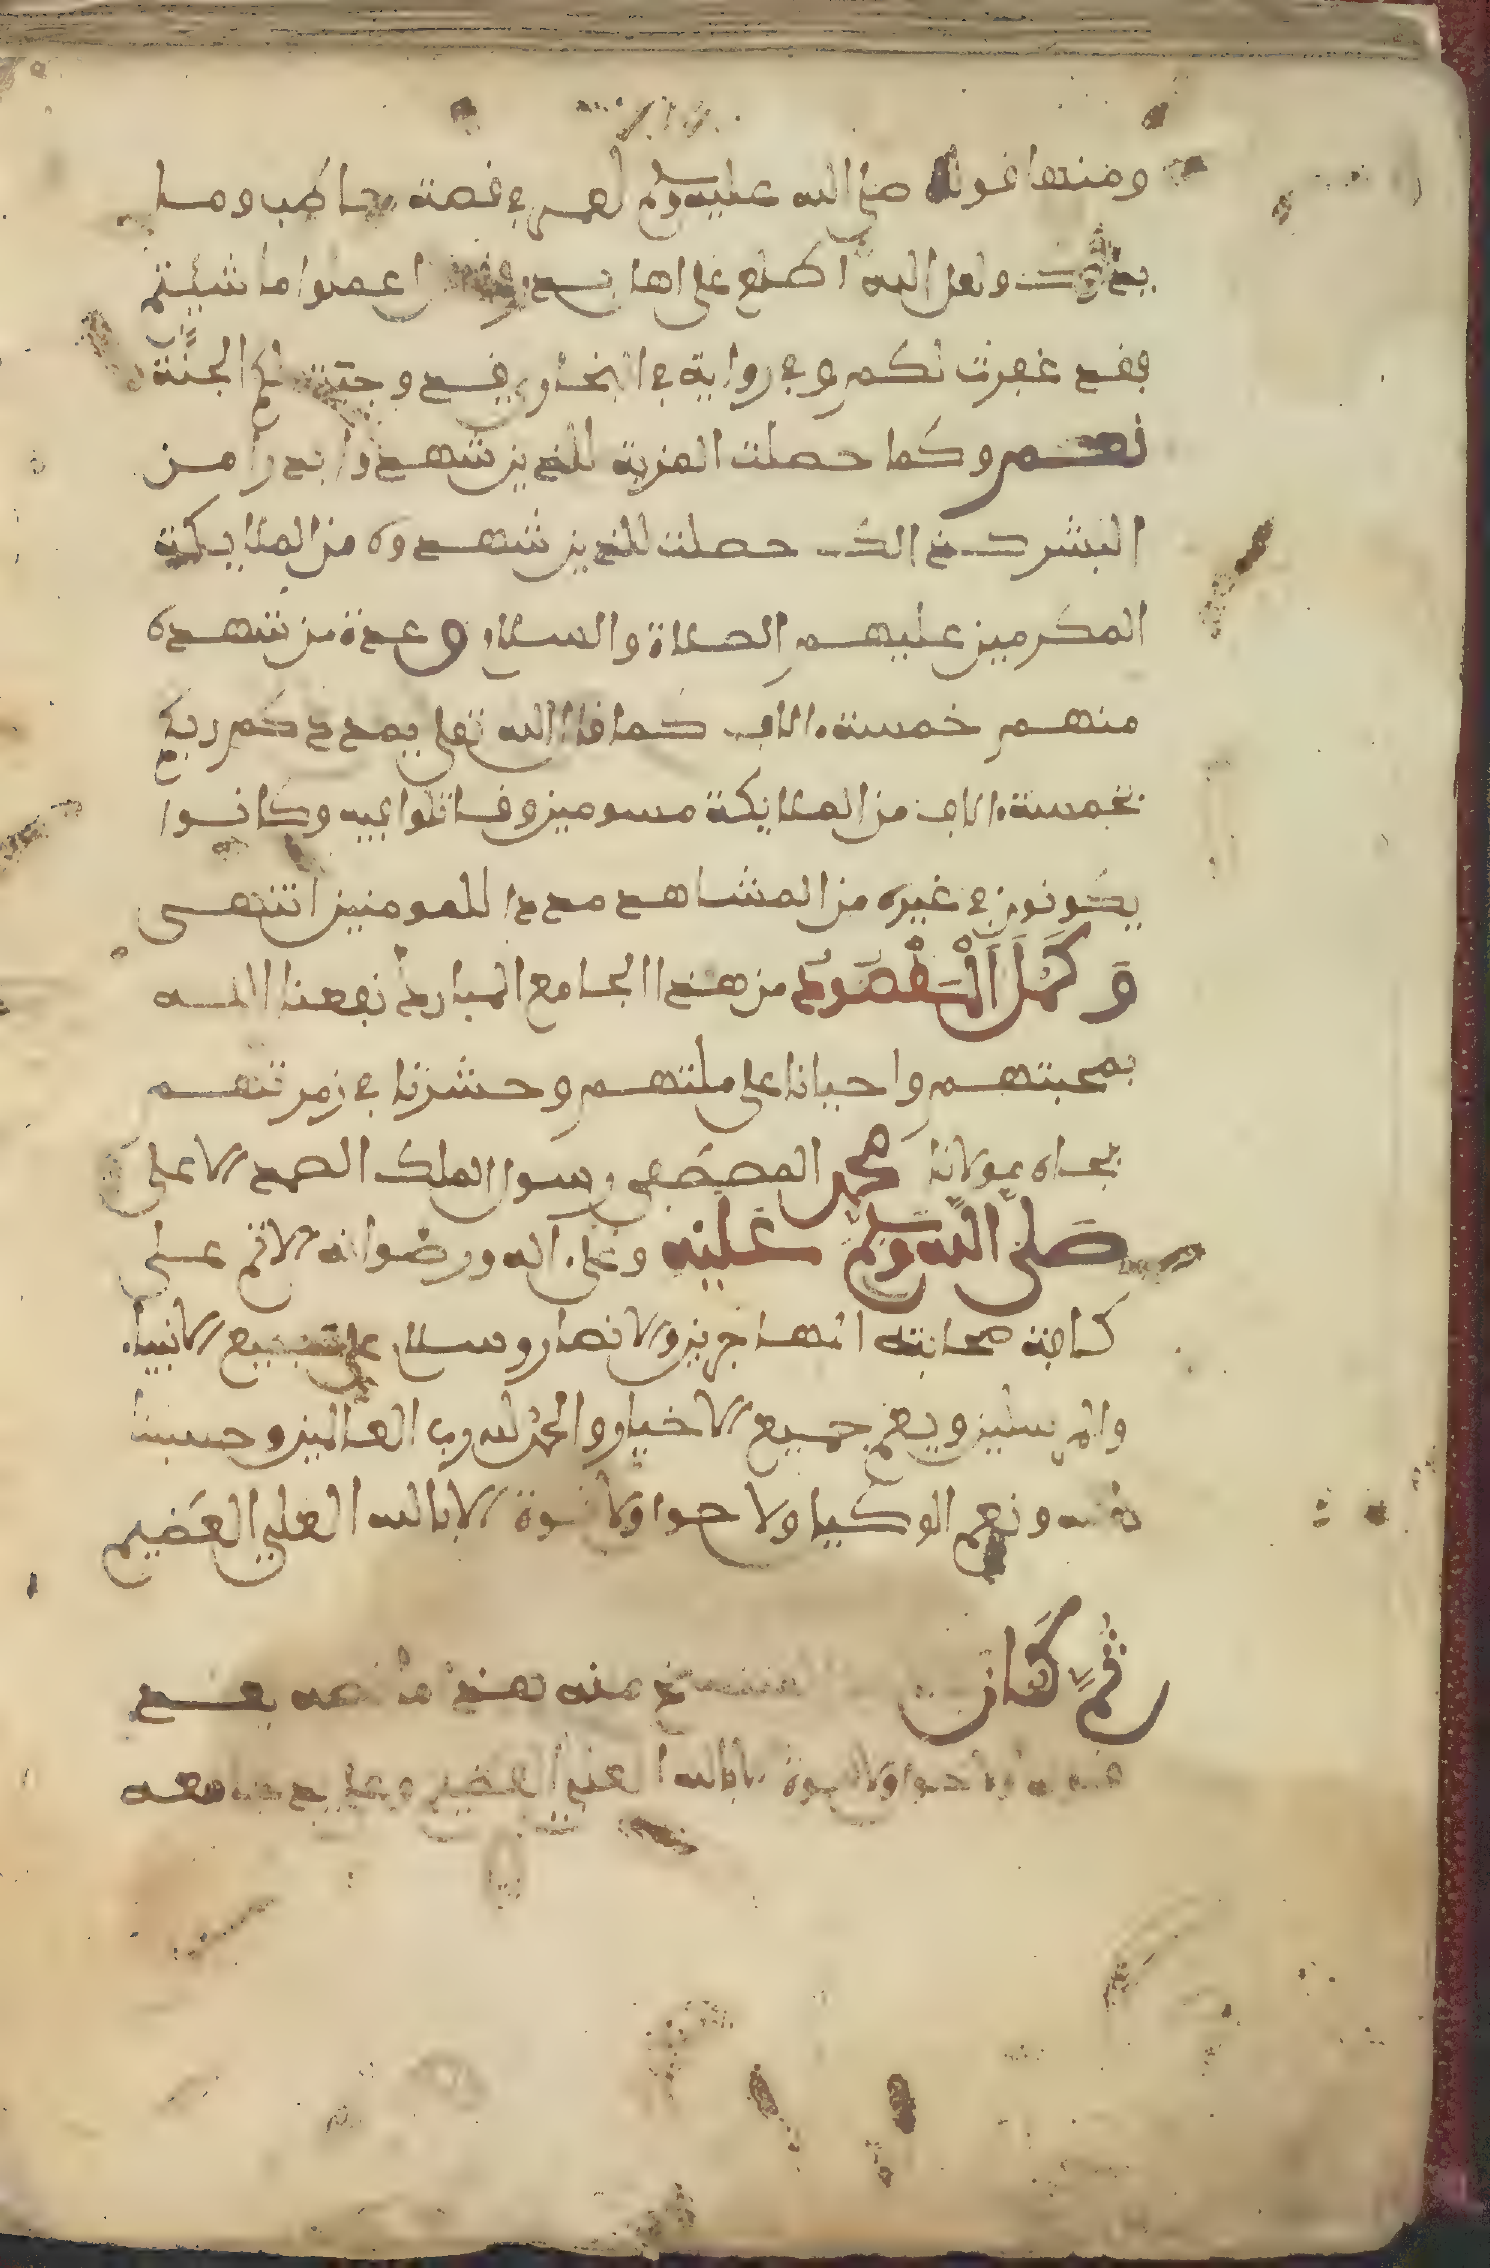 ومنها قوله صلى الله عليه وسلم لعمر في قصة حاطب وما
يدريك ولعل الله اطلع على اهل بدر اعملوا ما شئتم
فقد غفرت لكم وفي رواية في البخاري فقد وجبت لكم الجنة
نعم وكما حصلت المزية للذين شهدوا بدرا من
البشر كذالك حصلت للذين شهدوه من الملايكة
المكرمين عليهم الصلاة والسلام وعدة من شهده
منهم خمسة ءالاف كما قال الله تعلى يمددكم ربكم
بخمسة ءالاف من الملايكة مسومين وقاتلوا فيه وكانوا
يكونون في غيره من المشاهد مددا للمومنين انتهى
وَكَمُلَ الْمَقْصُودُ من هذا الجامع المبارك نفعنا الله
بمحبتهم واحيانا على ملتهم وحشرنا في زمرتهم
بجاه مولانا محمد المصطفى رسول الملك الصمد الاعلى
صَلى الله وسلم عَليْه وعلى ءاله ورضوانه الاتم على
كافة صحابته المهاجرين والانصار وسلام على جميع الانبياء
والمرسلين ويعم جميع الاخيار والحمد لله رب العالمين وحسبنا
الله ونعم الوكيل ولا حول ولا قوة الا بالله العلي العظيم
ثم كان منه هذا ما نصه بعد
ولا حول ولا قوة الا بالله العلي العظيم